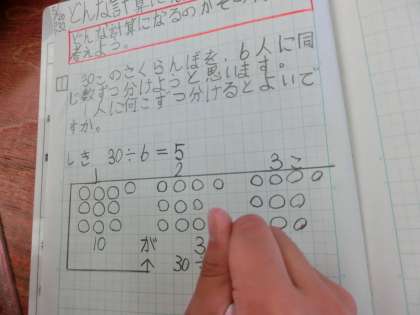 どんな計算に
どんな計算になるのか
考えよう。
1 30このさくらんぼを、6人に同
じ数ずつ分けようと思います。
一人に何こずつ分けるとよいで
すか。
しき 30÷6=5
1 2 3こ
10 が 3
30